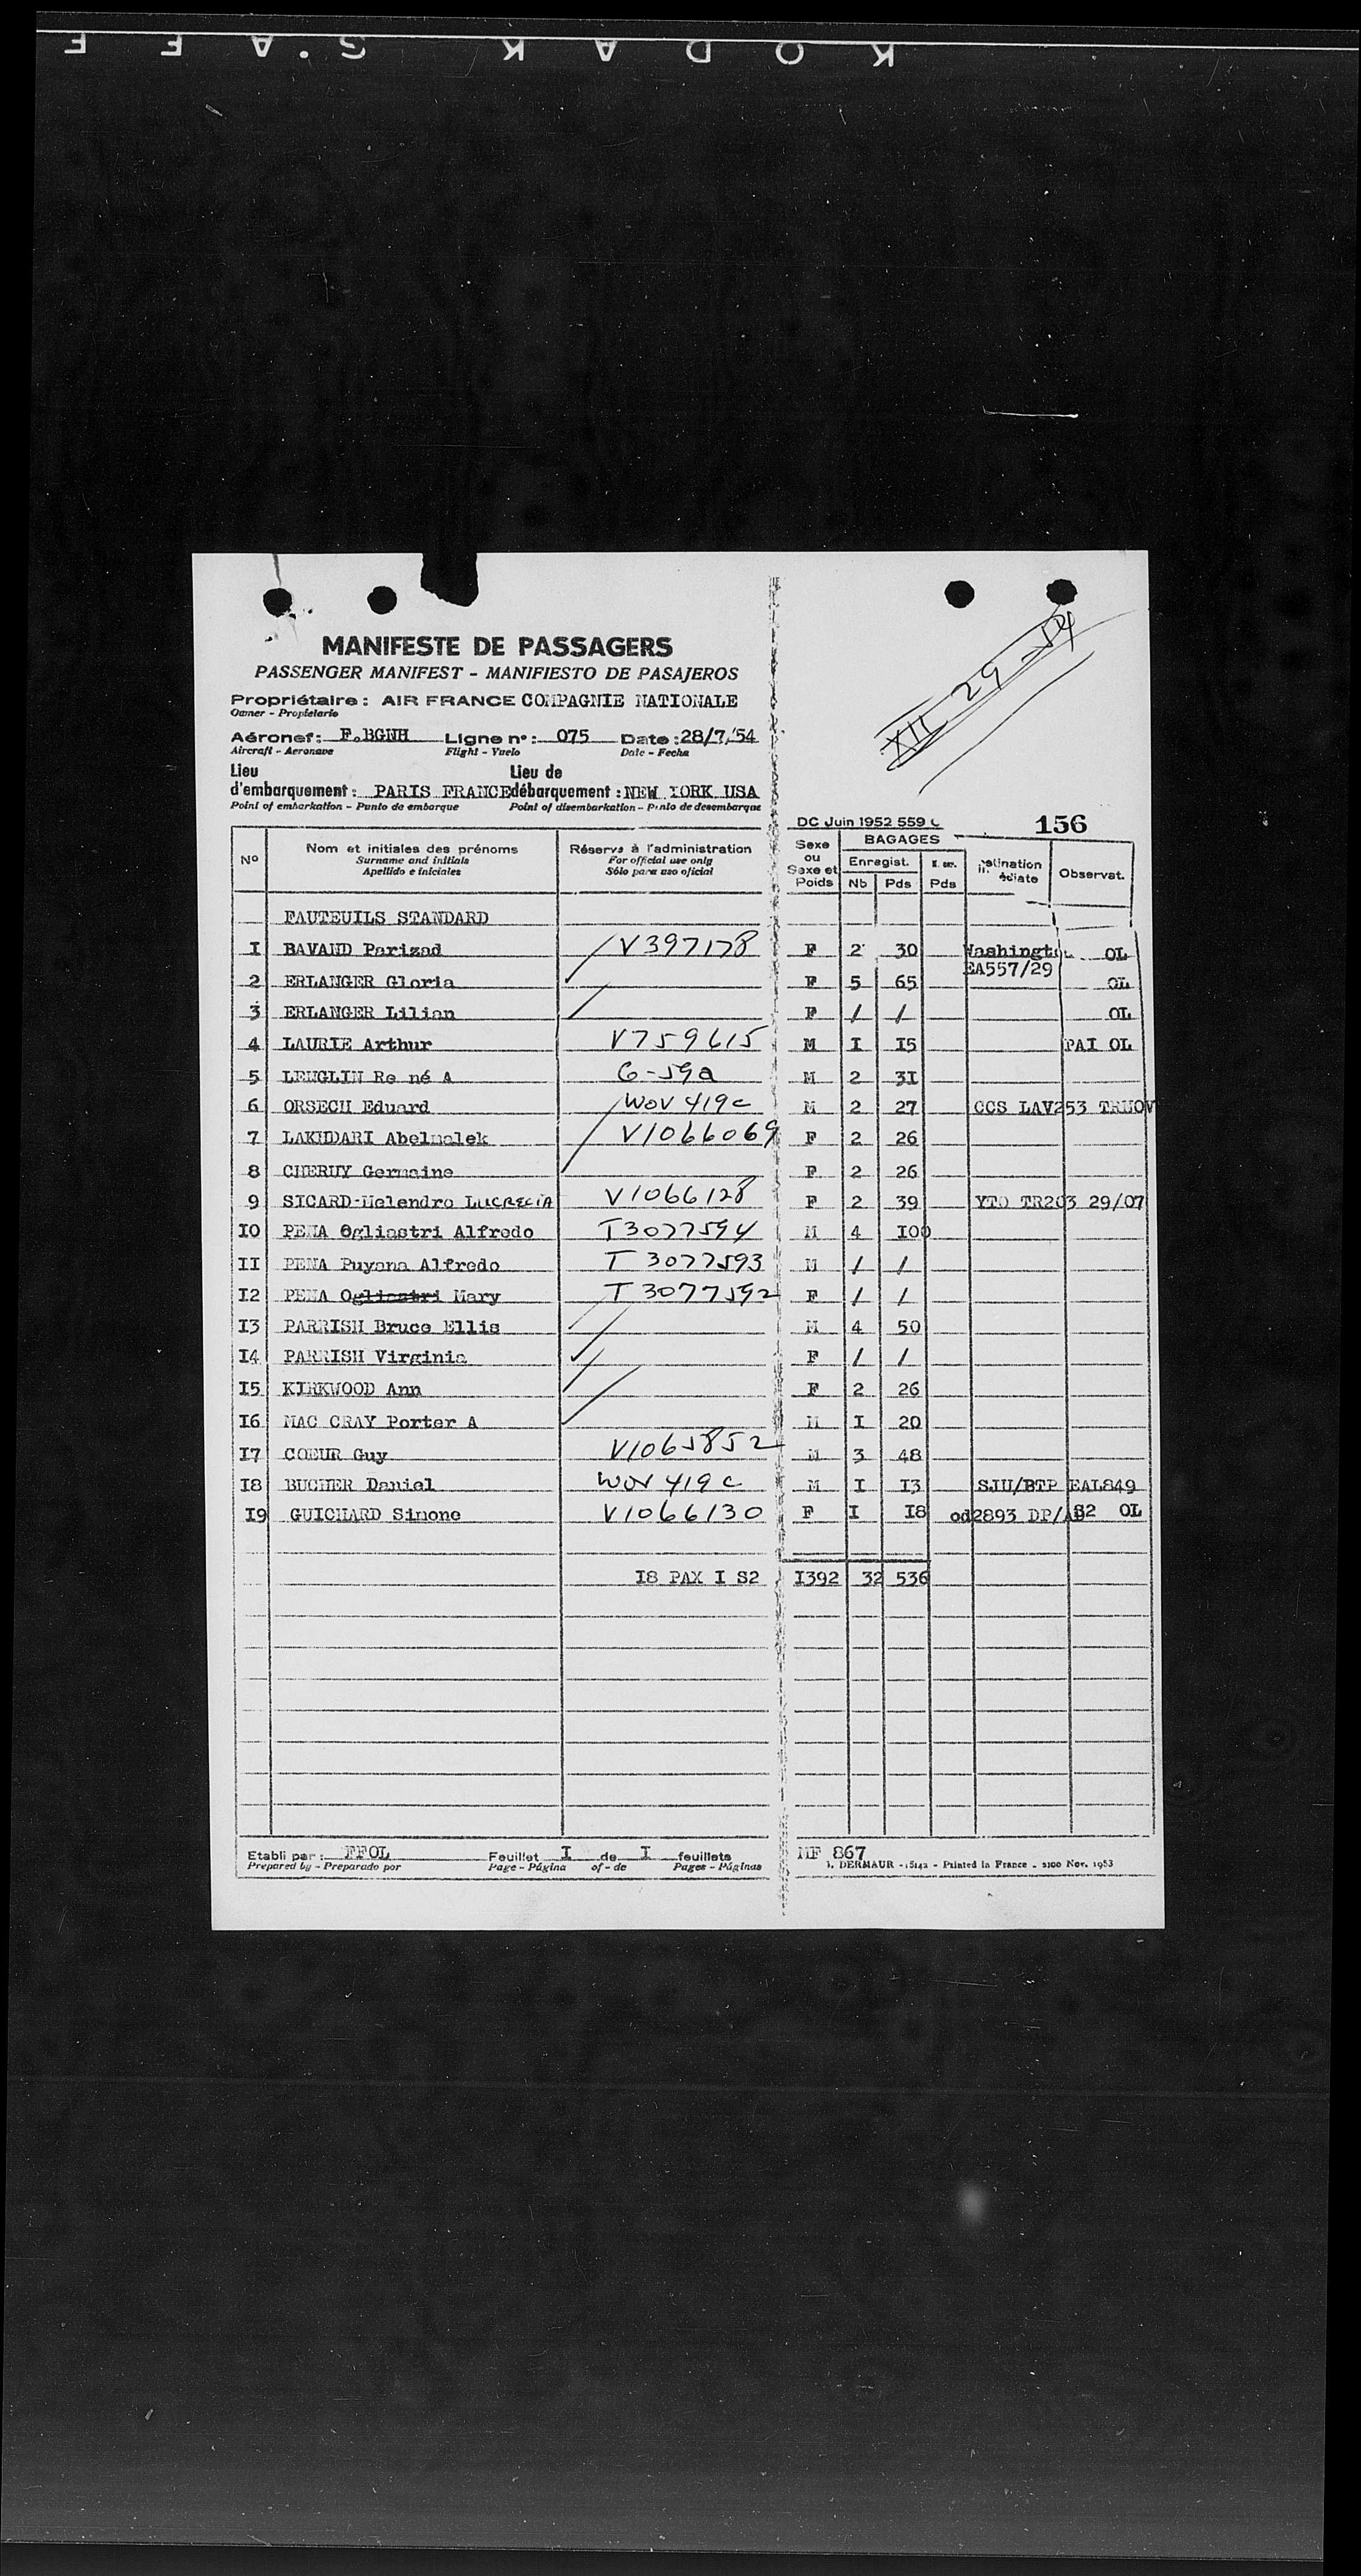 KODAK S.A F F
MANIFESTE DE PASSAGERS
PASSENGER MANIFEST - MANIFIESTO DE PASAJEROS
Propriétaire : AIR FRANCE COMPAGNIE NATIONALE
Owner - Propietario
Aéronef : F.BGNH Ligne n° : 075 Date : 28/7/54
Aircraft - Aeronave Flight - Vuelo Date - Fecha
Lieu Lieu de
d'embarquement : PARIS FRANCE débarquement : NEW YORK USA
Point of embarkation - Punto de embarque Point of disembarkation - Punto de desembarque
XII 29 54
DC Juin 1952 559 156
N° Nom et initiales des prénoms Réservé à l'administration Sexe BAGAGES
Surname and initials For official use only ou Enregist. Observat.
Apellido e iniciales Sólo para uso oficial Sexe et Poids Nb Pds Pds
FAUTEUILS STANDARD
I BAVAND Parizad V397178 F 2 30 Washingt OL
EA557/29
2 ERLANGER Gloria F 5 65 OL
3 ERLANGER Lilian F / / OL
4 LAURIE Arthur V759615 M I I5 PAI OL
5 LENGLIN Re né A G-59a M 2 3I
6 ORSECH Eduard WOV 419c M 2 27 CCS LAV253 TRNOV
7 LAKHDARI Abelmalek V1066069 F 2 26
8 CHERUY Germaine F 2 26
9 SICARD-Melendro LUCRECIA V1066128 F 2 39 YTO TR203 29/07
I0 PENA Ogliastri Alfredo T3077594 M 4 I00
II PENA Puyana Alfredo T 3077593 M / /
I2 PENA Ogliastri Mary T 3077592 F / /
I3 PARRISH Bruce Ellis M 4 50
I4 PARRISH Virginia F / /
I5 KIRKWOOD Ann F 2 26
I6 MAC CRAY Porter A M I 20
I7 COEUR Guy V1065852 M 3 48
I8 BUCHER Daniel WOV 419c M I I3 SJU/BTP EAL849
I9 GUICHARD Simone V1066130 F I I8 od2893 DP/AB S2 OL
I8 PAX I S2 I392 32 536
Etabli par : FFOL Feuillet I de I feuillets MF 867
Prepared by - Preparado por Page - Página of - de Pages - Páginas DERMAUR - 15142 - Printed in France - 2100 Nov. 1953